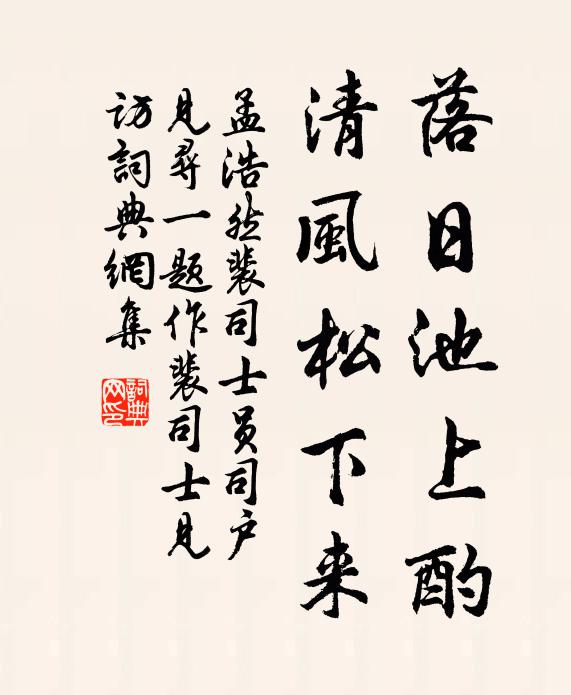 落日池上酌
清風松下来
孟浩然裴司士员司户
見尋一题作裴司士見
訪詞典網集
詞典
网印